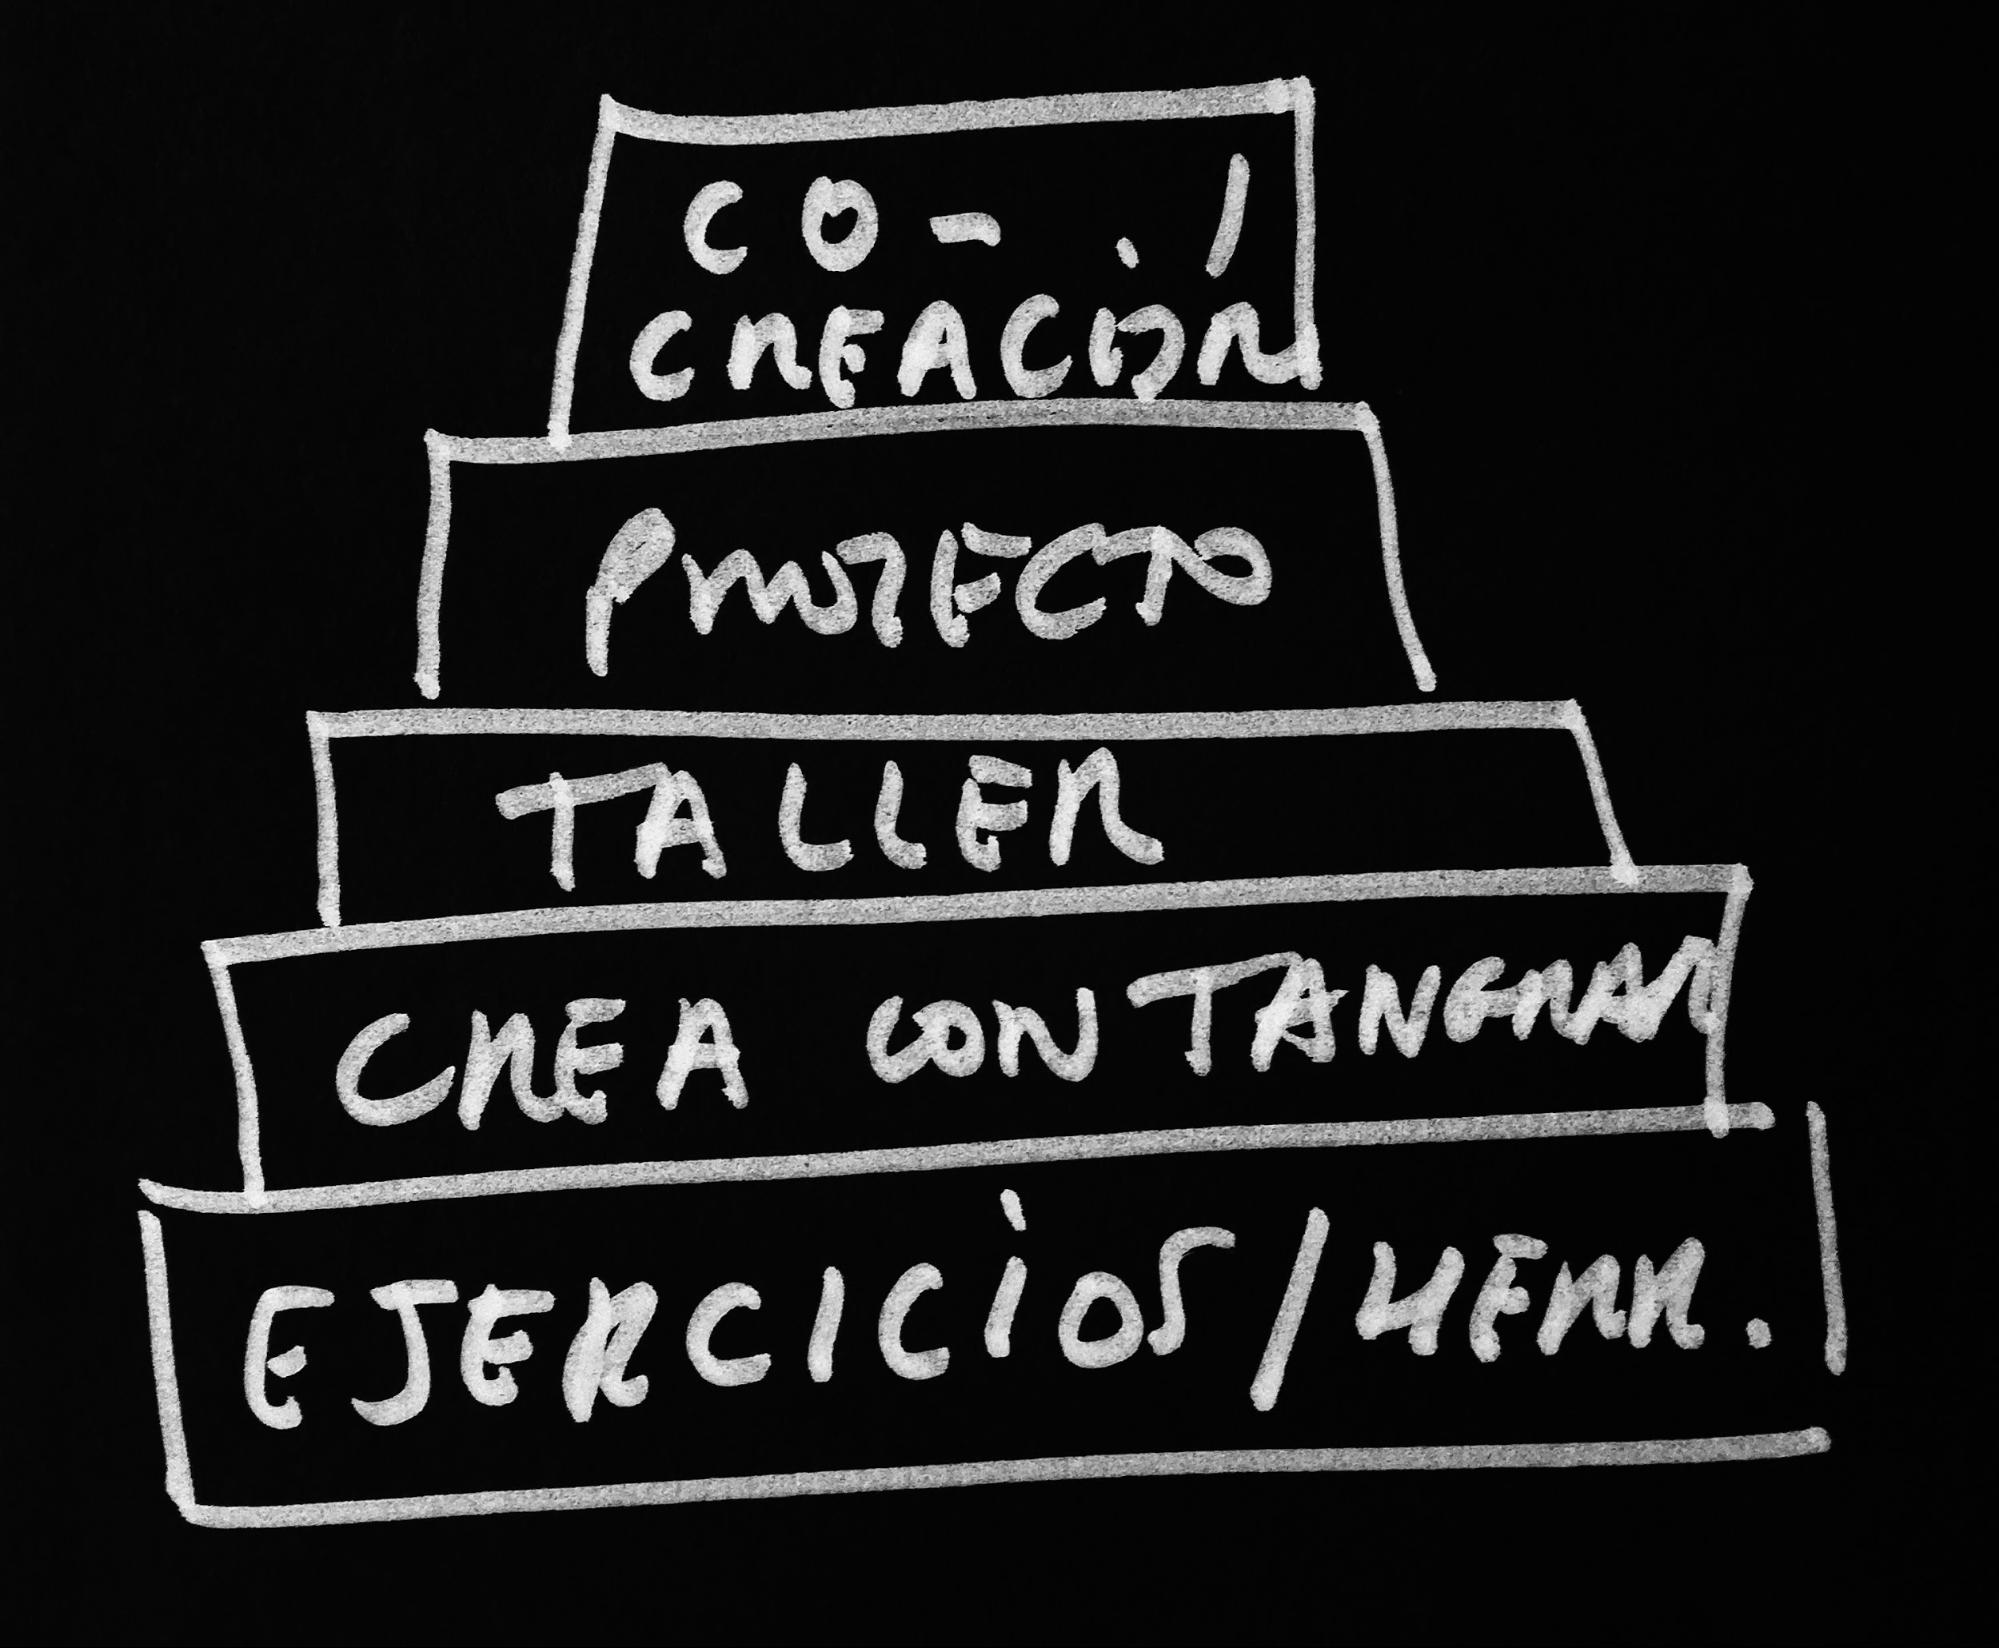 CO-
CREACIÓN
PROYECTO
TALLER
CREA CON TANGRAM
EJERCICIOS/HERR.